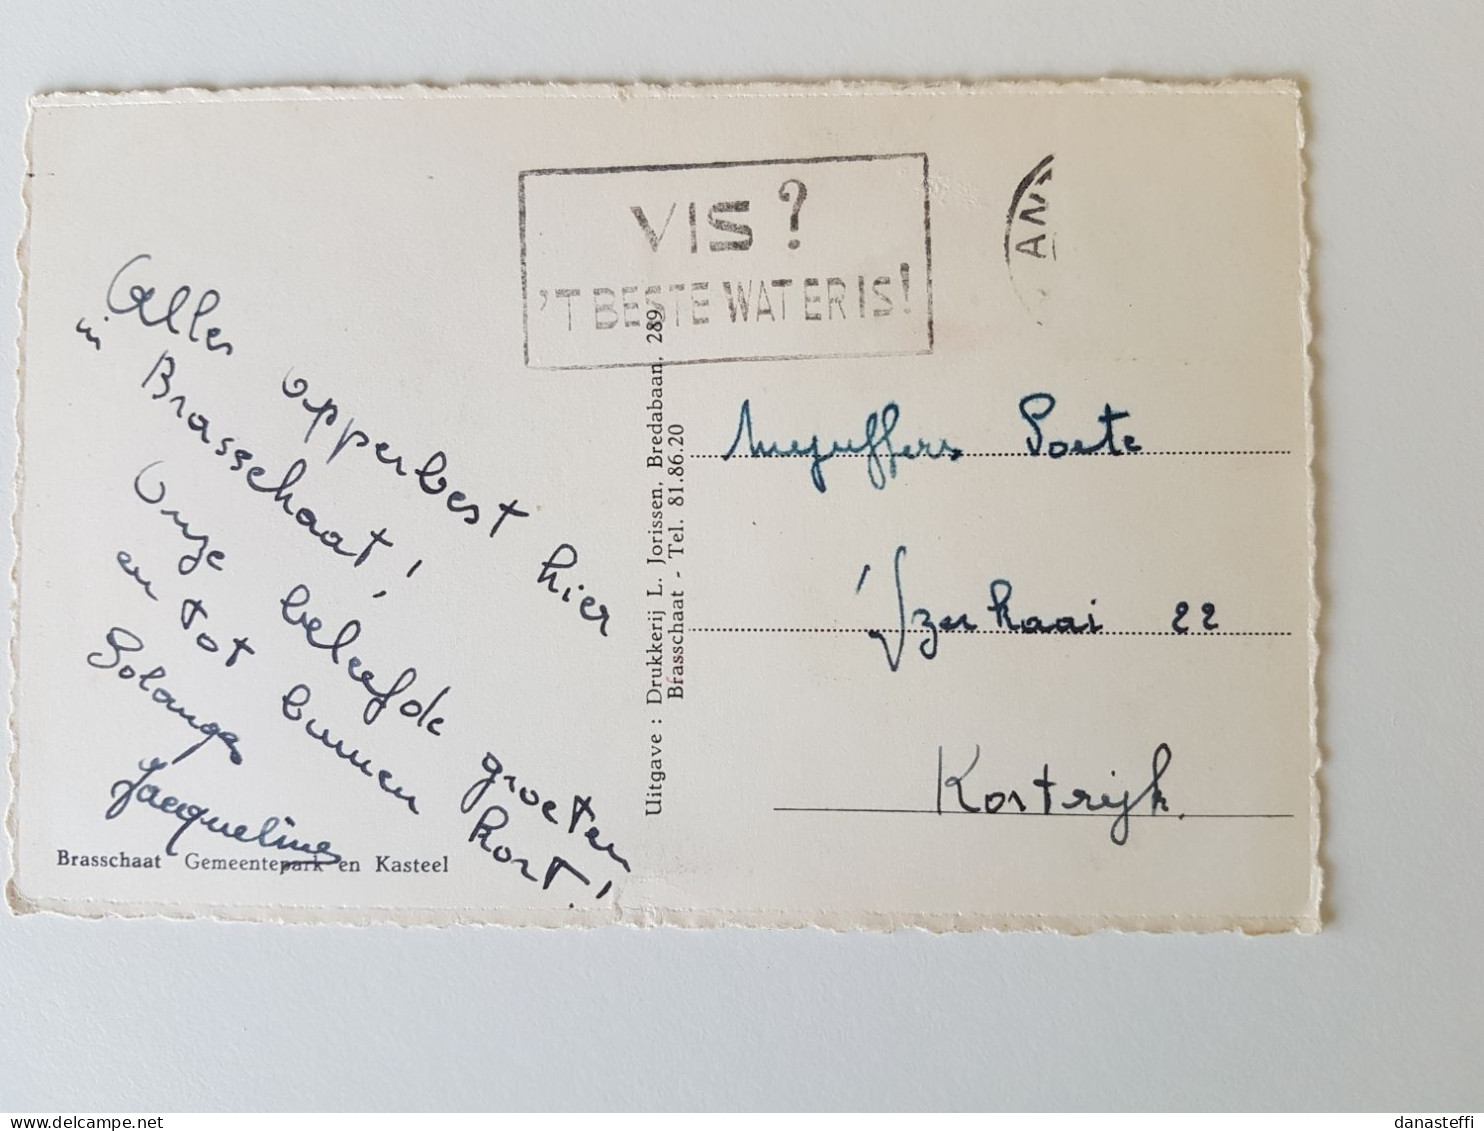 VIS?
'T BESTE WATER IS!
Alles opperbest hier
in Brasschaat!
Onze beleefde groeten
en tot binnen kort!
Solanges
Jacqueline
Brasschaat Gemeentepark en Kasteel
Uitgave : Drukkerij L. Jorissen, Bredabaan, 289,
Brasschaat - Tel. 81.86.20
Mejuffers Poete
IJzerkaai 22
Kortrijk.
danasteffi